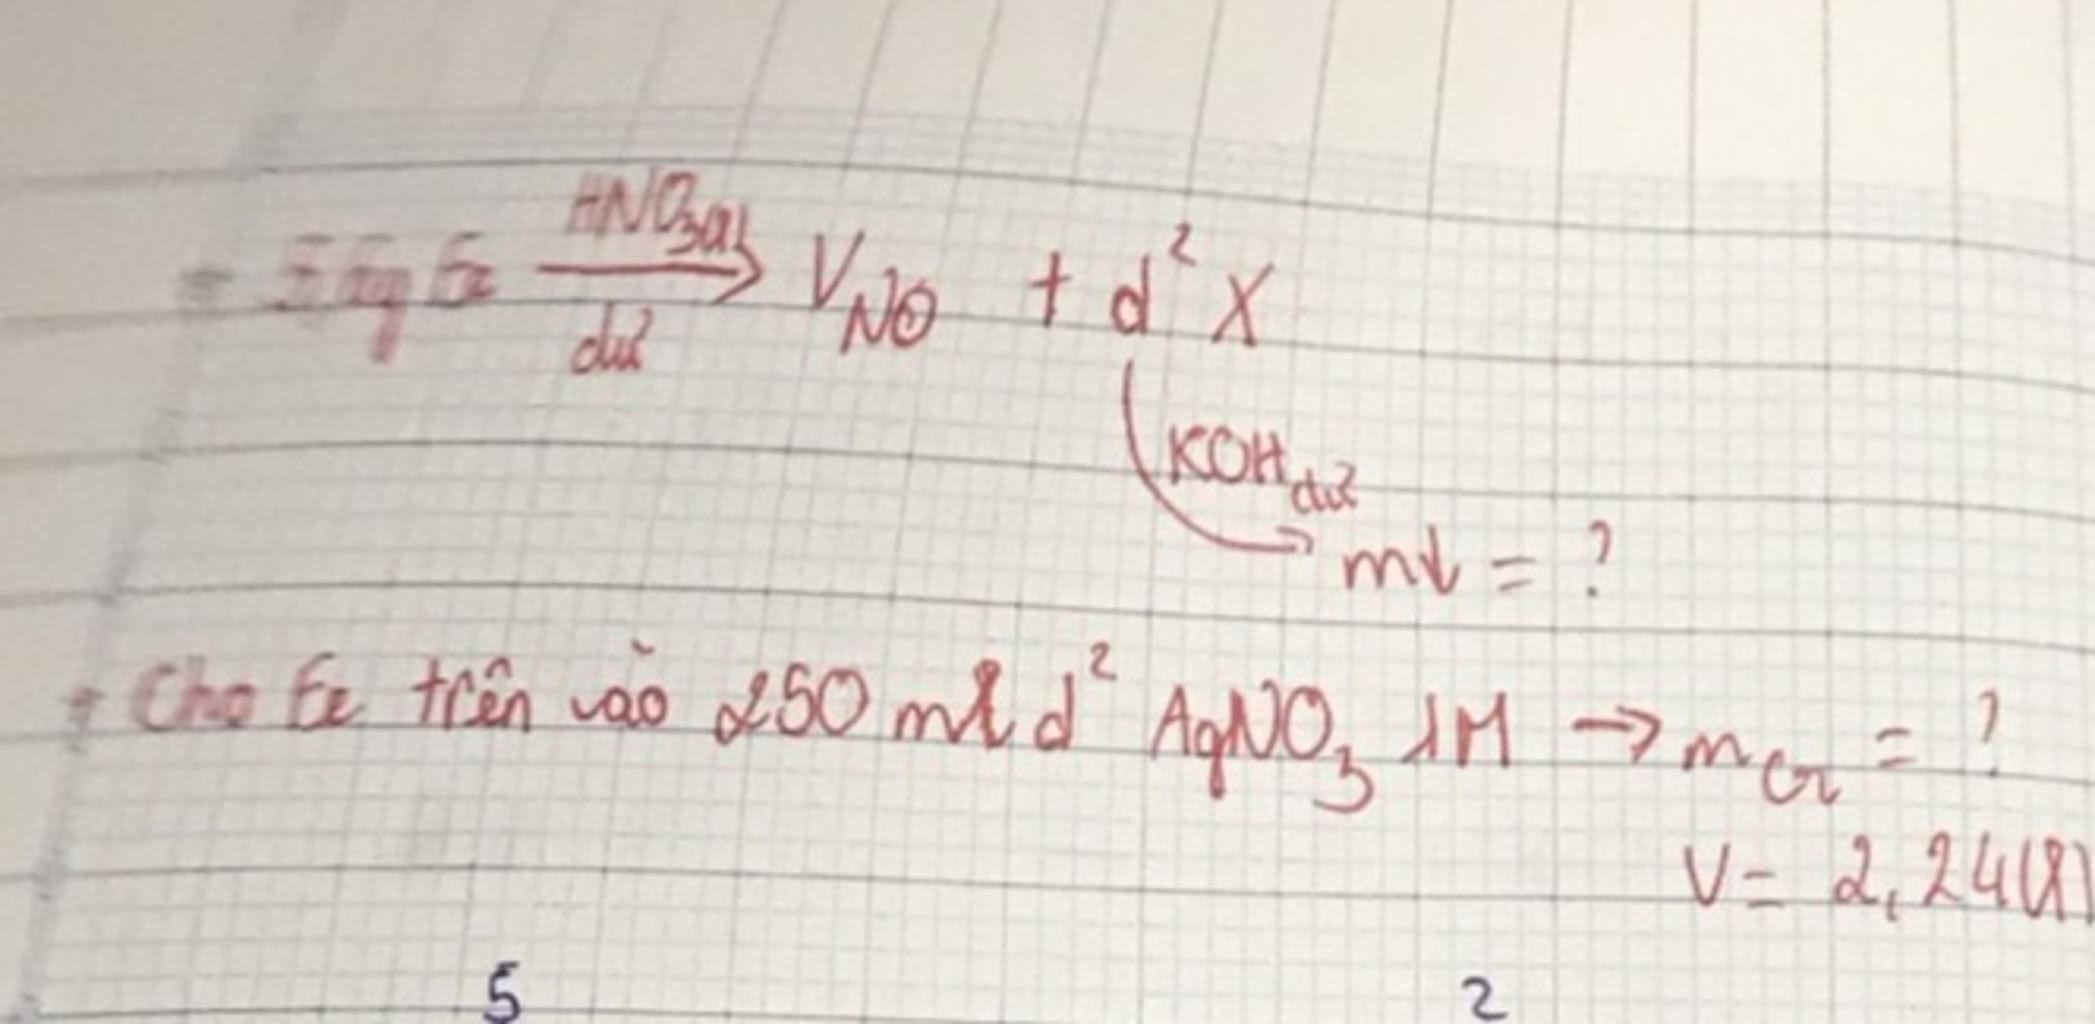 Fe HNO3 dư → V NO + d² X
KOH dư
→ m↓ = ?
+ Cho Fe trên vào 250 ml d² AgNO3 1M → m Cr = ?
V = 2,24(l)
5 2